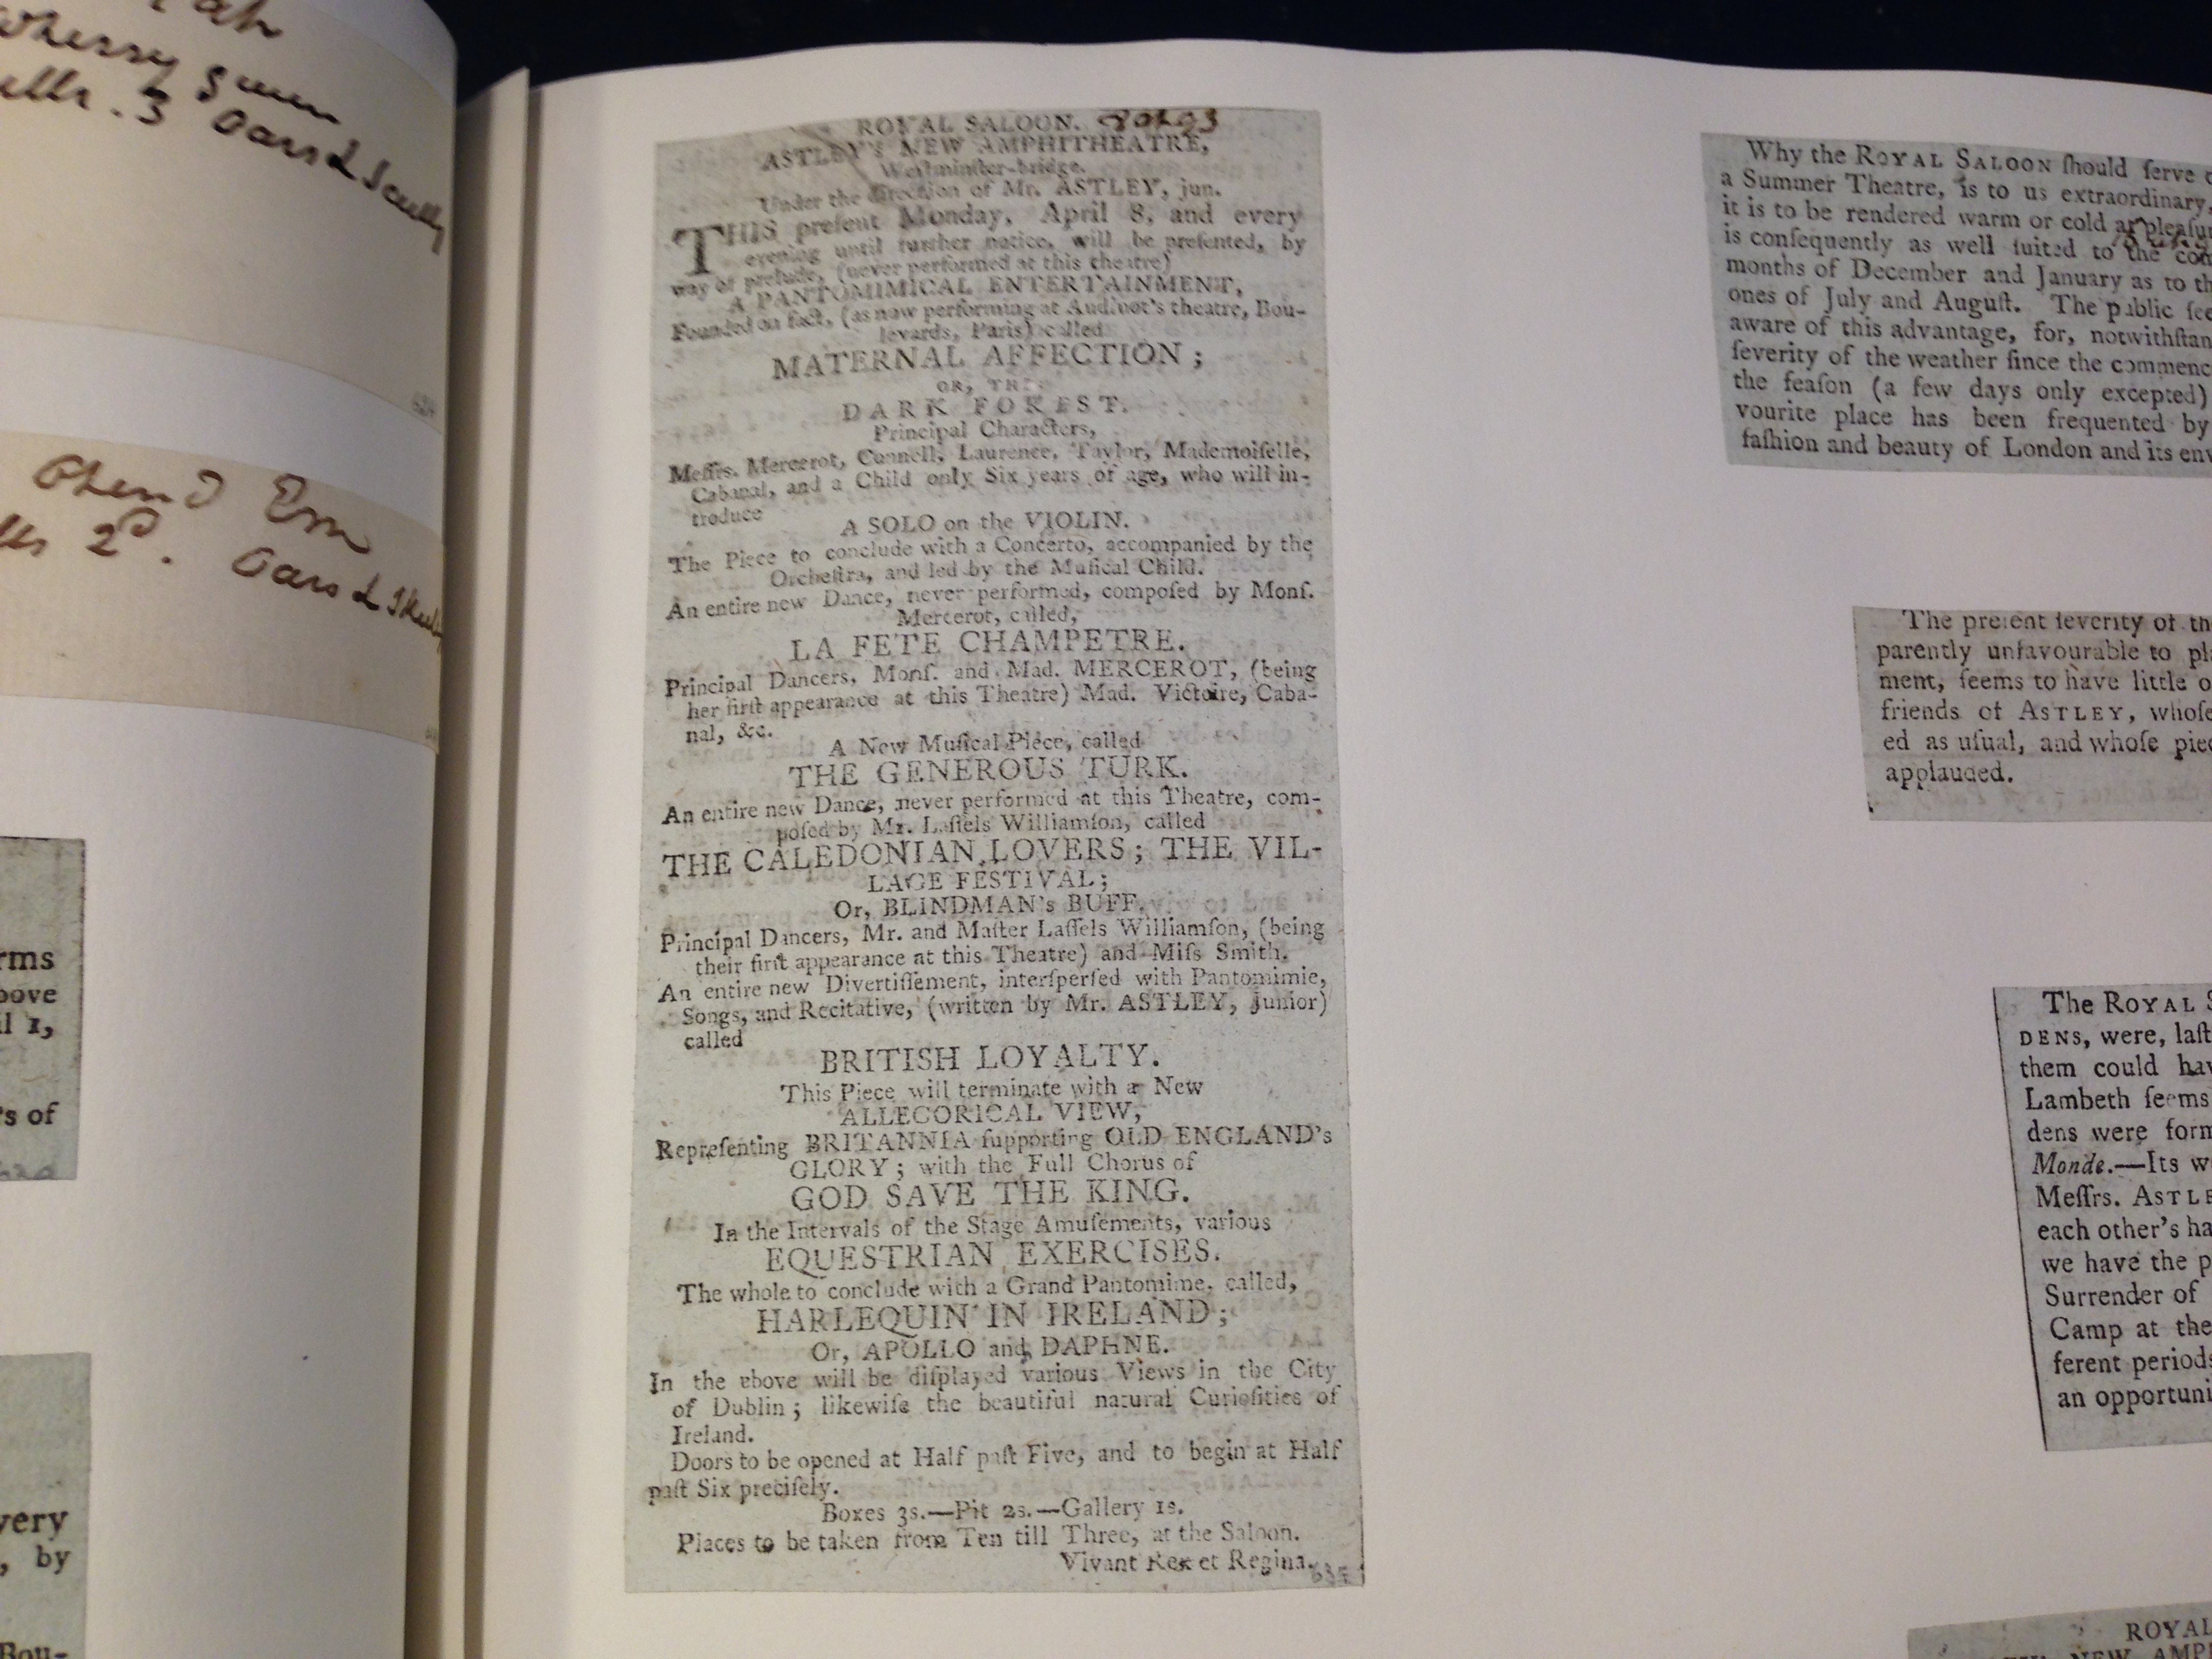 Wherry
. 3 Oars &
Oars &
2d.
rms
bove
il 1,
's of
very
, by
Bou-
ROYAL SALOON.
ASTLEY's NEW AMPHITHEATRE,
Weſtminſter-bridge.
Under the direction of Mr. ASTLEY, jun.
THIS preſent Monday, April 8, and every
evening until further notice, will be preſented, by
way of prelude, (never performed at this theatre)
A PANTOMIMICAL ENTERTAINMENT,
Founded on fact, (as now performing at Audinot's theatre, Bou-
levards, Paris) called
MATERNAL AFFECTION;
OR, THE
DARK FOREST.
Principal Characters,
Meſſrs. Mercerot, Connell, Laurence, Taylor, Mademoiſelle,
Cabanal, and a Child only Six years of age, who will in-
troduce
A SOLO on the VIOLIN.
The Piece to conclude with a Concerto, accompanied by the
Orcheſtra, and led by the Muſical Child.
An entire new Dance, never performed, compoſed by Monſ.
Mercerot, called,
LA FETE CHAMPETRE.
Principal Dancers, Monſ. and Mad. MERCEROT, (being
her firſt appearance at this Theatre) Mad. Victoire, Caba-
nal, &c.
A New Muſical Piece, called
THE GENEROUS TURK.
An entire new Dance, never performed at this Theatre, com-
poſed by Mr. Laſſels Williamſon, called
THE CALEDONIAN LOVERS; THE VIL-
LAGE FESTIVAL;
Or, BLINDMAN's BUFF.
Principal Dancers, Mr. and Maſter Laſſels Williamſon, (being
their firſt appearance at this Theatre) and Miſs Smith.
An entire new Divertiſſement, interſperſed with Pantomimie,
Songs, and Recitative, (written by Mr. ASTLEY, Junior)
called
BRITISH LOYALTY.
This Piece will terminate with a New
ALLEGORICAL VIEW,
Repreſenting BRITANNIA ſupporting OLD ENGLAND's
GLORY; with the Full Chorus of
GOD SAVE THE KING.
In the Intervals of the Stage Amuſements, various
EQUESTRIAN EXERCISES.
The whole to conclude with a Grand Pantomime, called,
HARLEQUIN IN IRELAND;
Or, APOLLO and DAPHNE.
In the above will be diſplayed various Views in the City
of Dublin; likewiſe the beautiful natural Curioſities of
Ireland.
Doors to be opened at Half paſt Five, and to begin at Half
paſt Six preciſely.
Boxes 3s.—Pit 2s.—Gallery 1s.
Places to be taken from Ten till Three, at the Saloon.
Vivant Rex et Regina.
Why the ROYAL SALOON ſhould ſerve
a Summer Theatre, is to us extraordinary,
it is to be rendered warm or cold at pleaſur
is conſequently as well ſuited to the
months of December and January as to th
ones of July and Auguſt. The public ſee
aware of this advantage, for, notwithſtan
ſeverity of the weather ſince the commenc
the ſeaſon (a few days only excepted)
vourite place has been frequented by
faſhion and beauty of London and its env
The preſent ſeverity of th
parently unfavourable to pl
ment, ſeems to have little o
friends of ASTLEY, whoſe
ed as uſual, and whoſe piec
applauded.
The ROYAL S
DENS, were, laſt
them could hav
Lambeth ſeems
dens were form
Monde.—Its w
Meſſrs. ASTLE
each other's ha
we have the p
Surrender of
Camp at the
ferent periods
an opportuni
ROYAL
NEW AMP